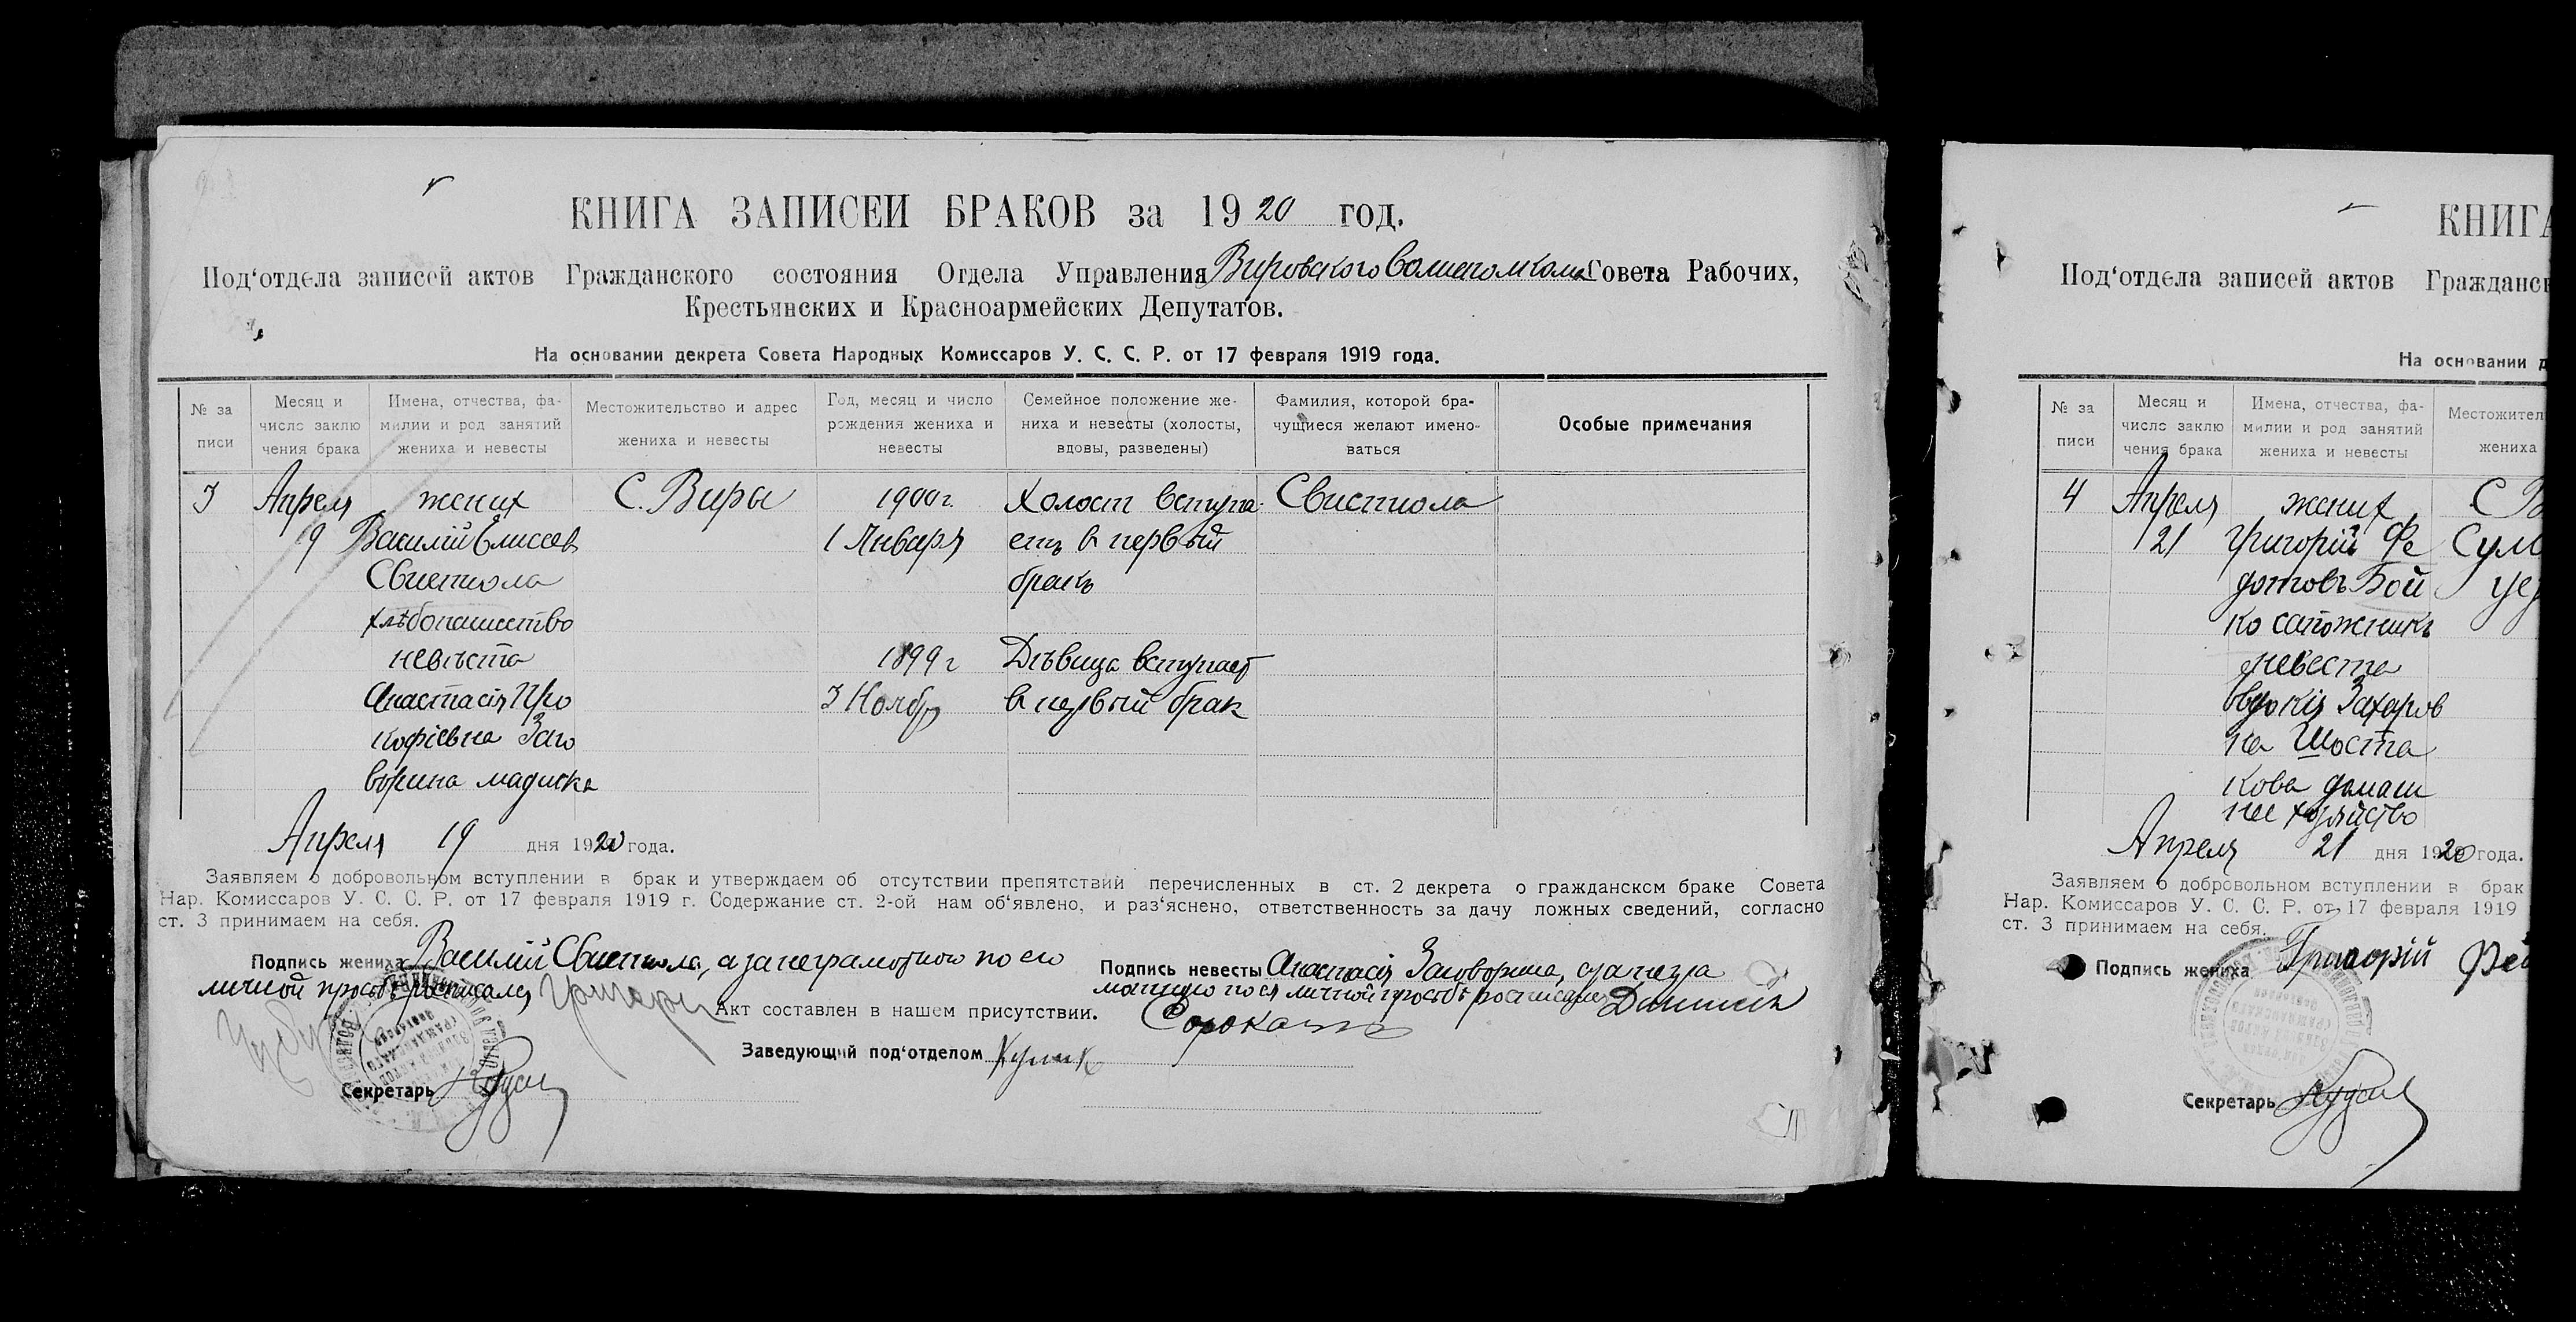 КНИГА ЗАПИСЕЙ БРАКОВ за 1920 год.
Под‘отдела записей актов Гражданского состояния Отдела Управления Вировского Волисполкома Совета Рабочих,
Крестьянских и Красноармейских Депутатов.
На основании декрета Совета Народных Комиссаров У. С. С. Р. от 17 февраля 1919 года.
№ за писи
Месяц и число заклю чения брака
Имена, отчества, фа- милии и род занятий жениха и невесты
Местожительство и адрес жениха и невесты
Год, месяц и число рождения жениха и невесты
Семейное положение же- ниха и невесты (холосты, вдовы, разведены)
Фамилия, которой бра- чущиеся желают имено- ваться
Особые примечания
3 Апреля жених С. Виры 1900 г. Холост вступа- Свистиола
19 Василий Елисеев 1 Января етъ в первый
Свистиола бракъ
хлѣбопашество
невѣста 1899 г Дѣвица вступает
Анастасія Про 3 Ноябр в первый брак
кофіевна Заго
ворина
Апреля 19 дня 1920 года.
Заявляем о добровольном вступлении в брак и утверждаем об отсутствии препятствий перечисленных в ст. 2 декрета о гражданском браке Совета
Нар. Комиссаров У. С. С. Р. от 17 февраля 1919 г. Содержание ст. 2-ой нам об‘явлено, и раз‘яснено, ответственность за дачу ложных сведений, согласно
ст. 3 принимаем на себя.
Подпись жениха Василий Свистиола, а за неграмотного по его
личной просьбѣ росписался Григори
Подпись невесты Анастасія Заговорина, а за негра
мотную по ея личной просьбѣ росписался Даниил
Сорока
Акт составлен в нашем присутствии.
Заведующий под‘отделом Кулик
Секретарь
КНИГА
Под‘отдела записей актов Гражданск
На основании д
№ за писи
Месяц и число заклю чения брака
Имена, отчества, фа- милии и род занятий жениха и невесты
Местожител жениха
4 Апреля жених С В
21 Григорій Фе Сум
дотовъ Бой уез
ко сапожникъ
невеста
Евдокія Захаров
на Шоста
кова домаш
нее хозяйство
Апреля 21 дня 1920 года.
Заявляем о добровольном вступлении в брак
Нар. Комиссаров У. С. С. Р. от 17 февраля 1919
ст. 3 принимаем на себя.
Подпись жениха Григорій Фед
Секретарь